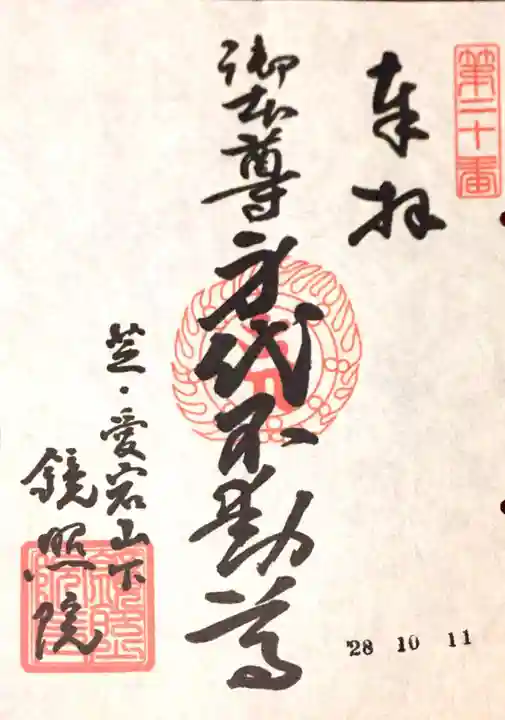 第二十番
奉拝
御本尊 身代不動尊
芝・愛宕山下
鏡照院
'28 10 11